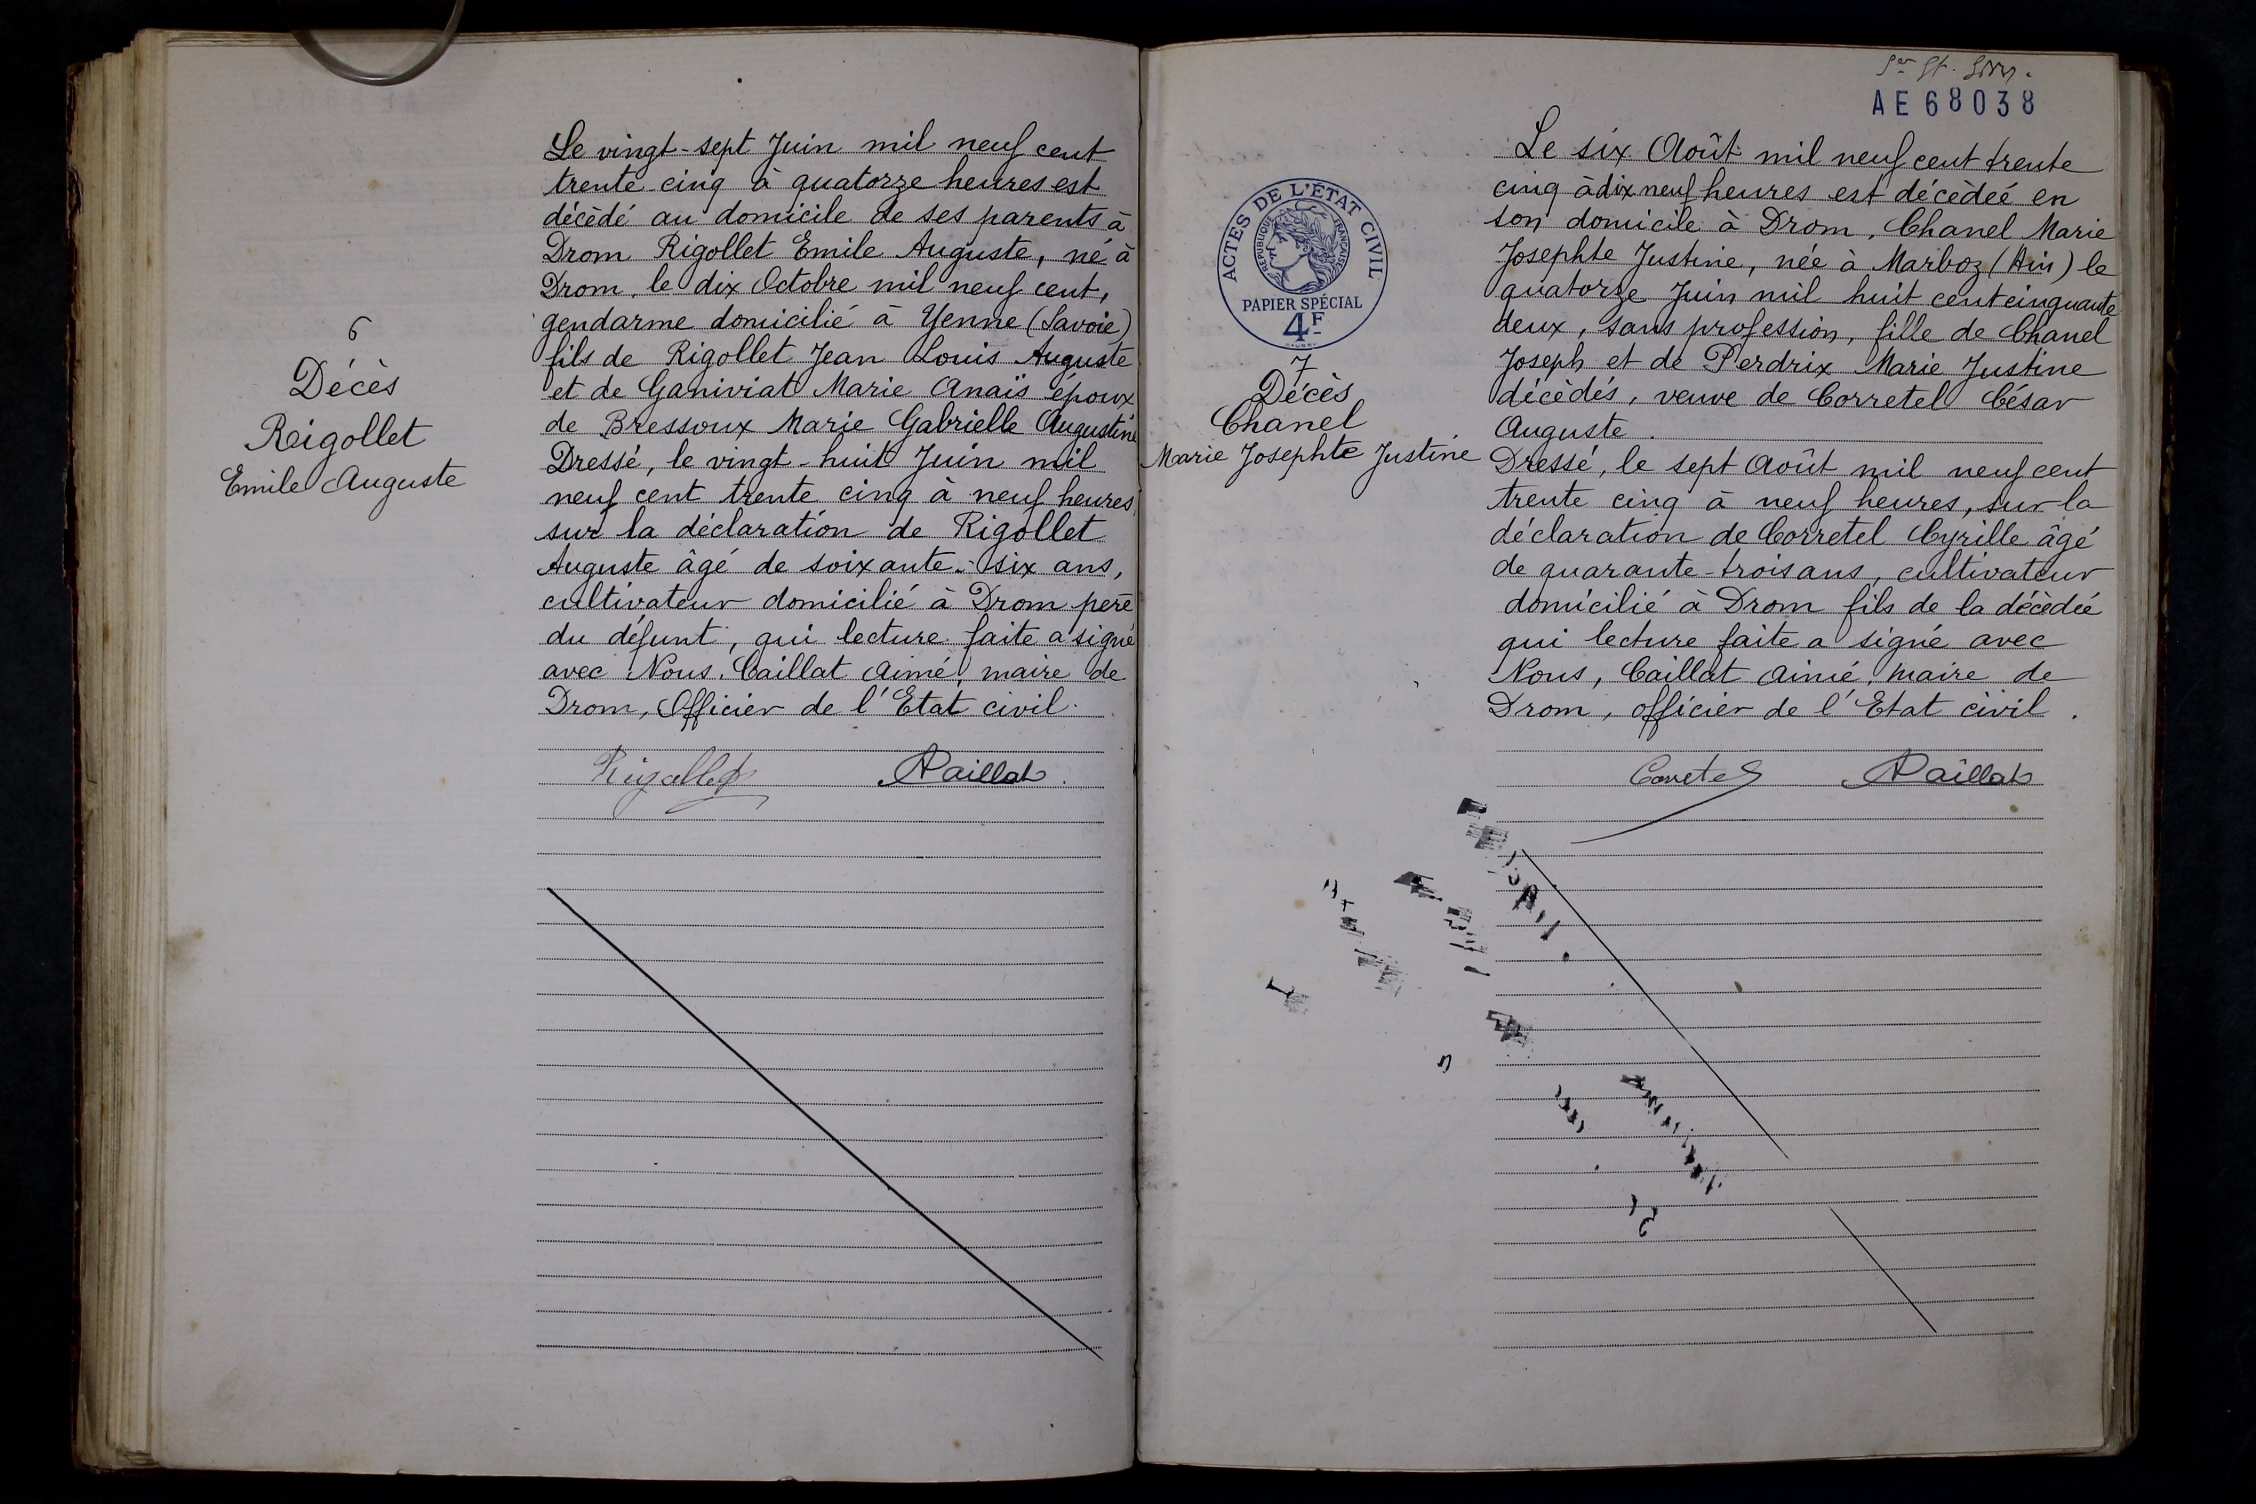 6
Décès
Rigollet
Emile Auguste
Le vingt-sept Juin mil neuf cent
trente cinq à quatorze heures est
décèdé au domicile de ses parents à
Drom Rigollet Emile Auguste, né à
Drom, le dix Octobre mil neuf cent,
gendarme domicilié à Yenne (Savoie)
fils de Rigollet Jean Louis Auguste
et de Ganiviat Marie Anaïs époux
de Bressoux Marie Gabrielle Augustine
Dressé, le vingt-huit Juin mil
neuf cent trente cinq à neuf heures
sur la déclaration de Rigollet
Auguste âgé de soixante-six ans,
cultivateur domicilié à Drom père
du défunt, qui lecture faite a signé
avec Nous, Caillat Aimé, maire de
Drom, Officier de l'Etat civil.
Rigollet ACaillat.
AE68038
ACTES DE L'ÉTAT CIVIL
RÉPUBLIQUE FRANÇAISE
PAPIER SPÉCIAL
4F
7
Décès
Chanel
Marie Josephte Justine
Le six Août mil neuf cent trente
cinq à dix neuf heures est décèdeé en
son domicile à Drom, Chanel Marie
Josephte Justine, née à Marboz (Ain) le
quatorze Juin mil huit cent cinquante
deux, sans profession, fille de Chanel
Joseph et de Perdrix Marie Justine
décèdés, veuve de Corretel César
Auguste.
Dressé, le sept Août mil neuf cent
trente cinq à neuf heures, sur la
déclaration de Corretel Cyrille âgé
de quarante-trois ans, cultivateur
domicilié à Drom fils de la décèdée
qui lecture faite a signé avec
Nous, Caillat Aimé, maire de
Drom, officier de l'Etat civil.
Corretel ACaillat